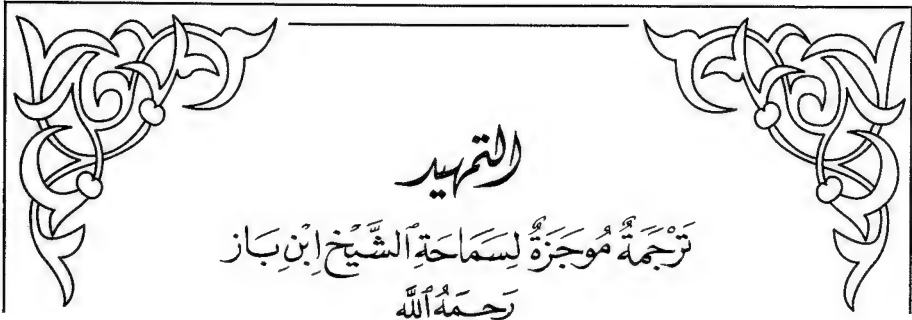 التمهيد
تَرْجَمَةٌ مُوجَزَةٌ لِسَمَاحَةِ ٱلشَّيْخِ ابْنِ بَاز
رَحِمَهُ ٱللَّه